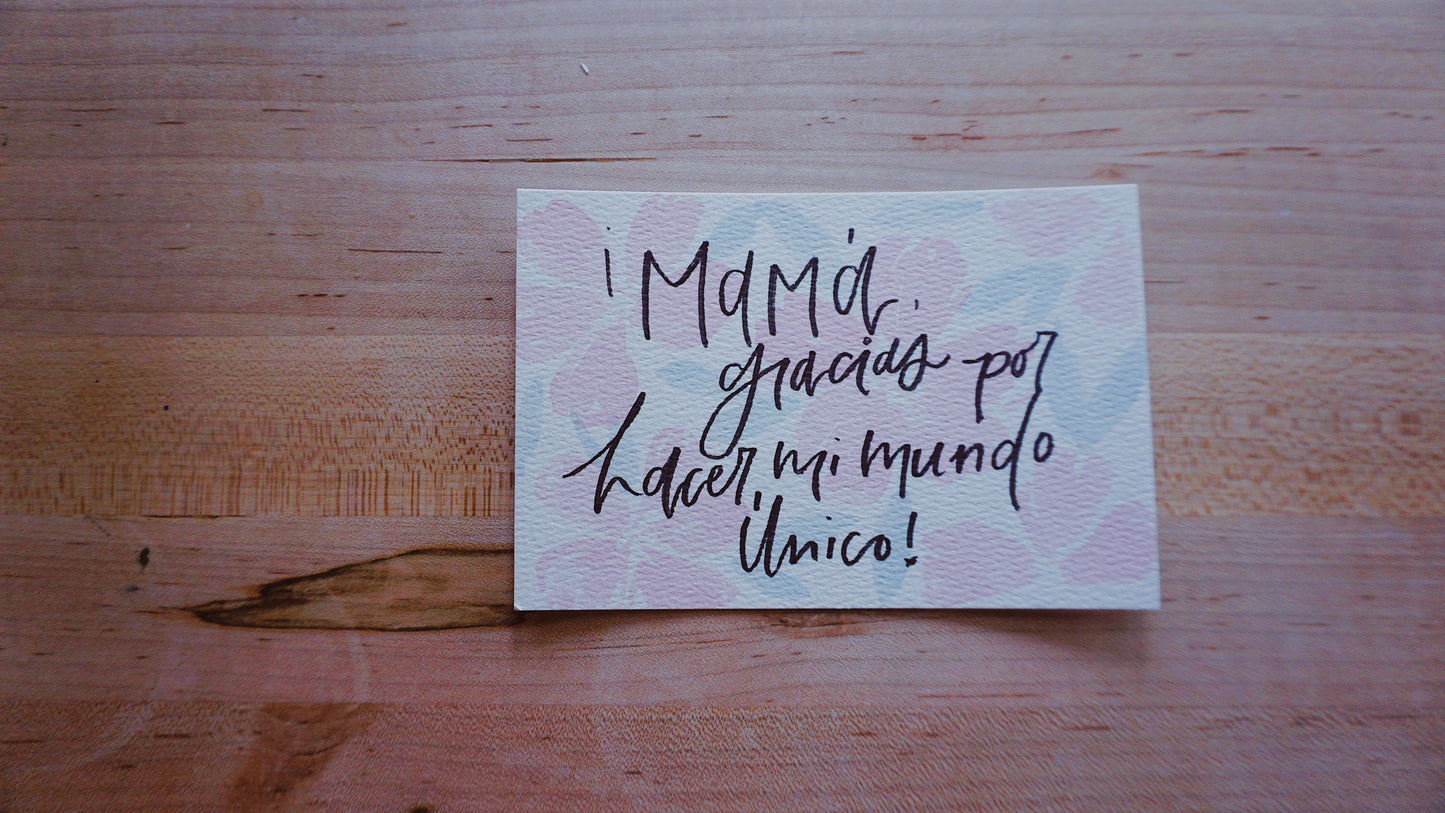 ¡Mamá,
gracias por
hacer mi mundo
Único!